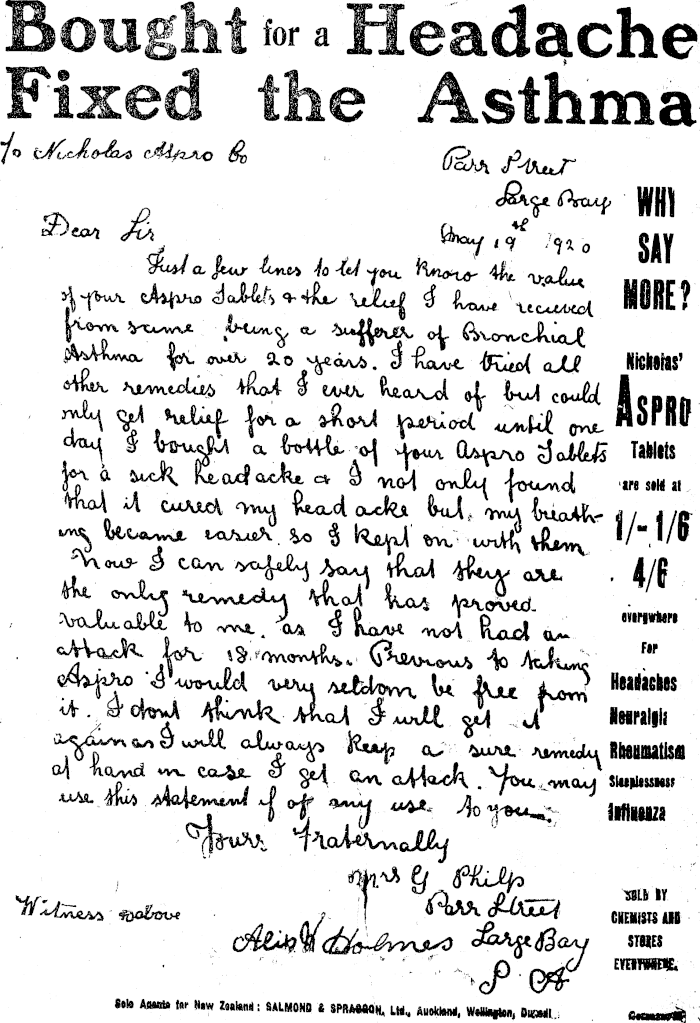 Bought for a Headache
Fixed the Asthma
To Nicholas Aspro Co
Parr Street
Large Bay
May 19th 1920
Dear Sir
Just a few lines to let you know the value
of your Aspro Tablets & the relief I have recieved
from same being a sufferer of Bronchial
Asthma for over 20 years. I have tried all
other remedies that I ever heard of but could
only get relief for a short period until one
day I bought a bottle of your Aspro Tablets
for a sick headacke & I not only found
that it cured my head acke but my breath-
ing became easier so I kept on with them
Now I can safely say that they are
the only remedy that has proved
valuable to me. as I have not had an
attack for 18 months. Previous to taking
Aspro I would very seldom be free from
it. I dont think that I will get it
again as I will always keep a sure remedy
at hand in case I get an attack. You may
use this statement if of any use to you.
Yours Fraternally
Mrs G Philp
Parr Street
Large Bay
S A
Witness above
Holmes
WHY
SAY
MORE?
Nicholas'
ASPRO
Tablets
are sold at
1/- 1/6
4/6
everywhere
For
Headaches
Neuralgia
Rheumatism
Sleeplessness
Influenza
SOLD BY
CHEMISTS AND
STORES
EVERYWHERE.
Sole Agents for New Zealand: SALMOND & SPRAGGON, Ltd., Auckland, Wellington, Dunedin